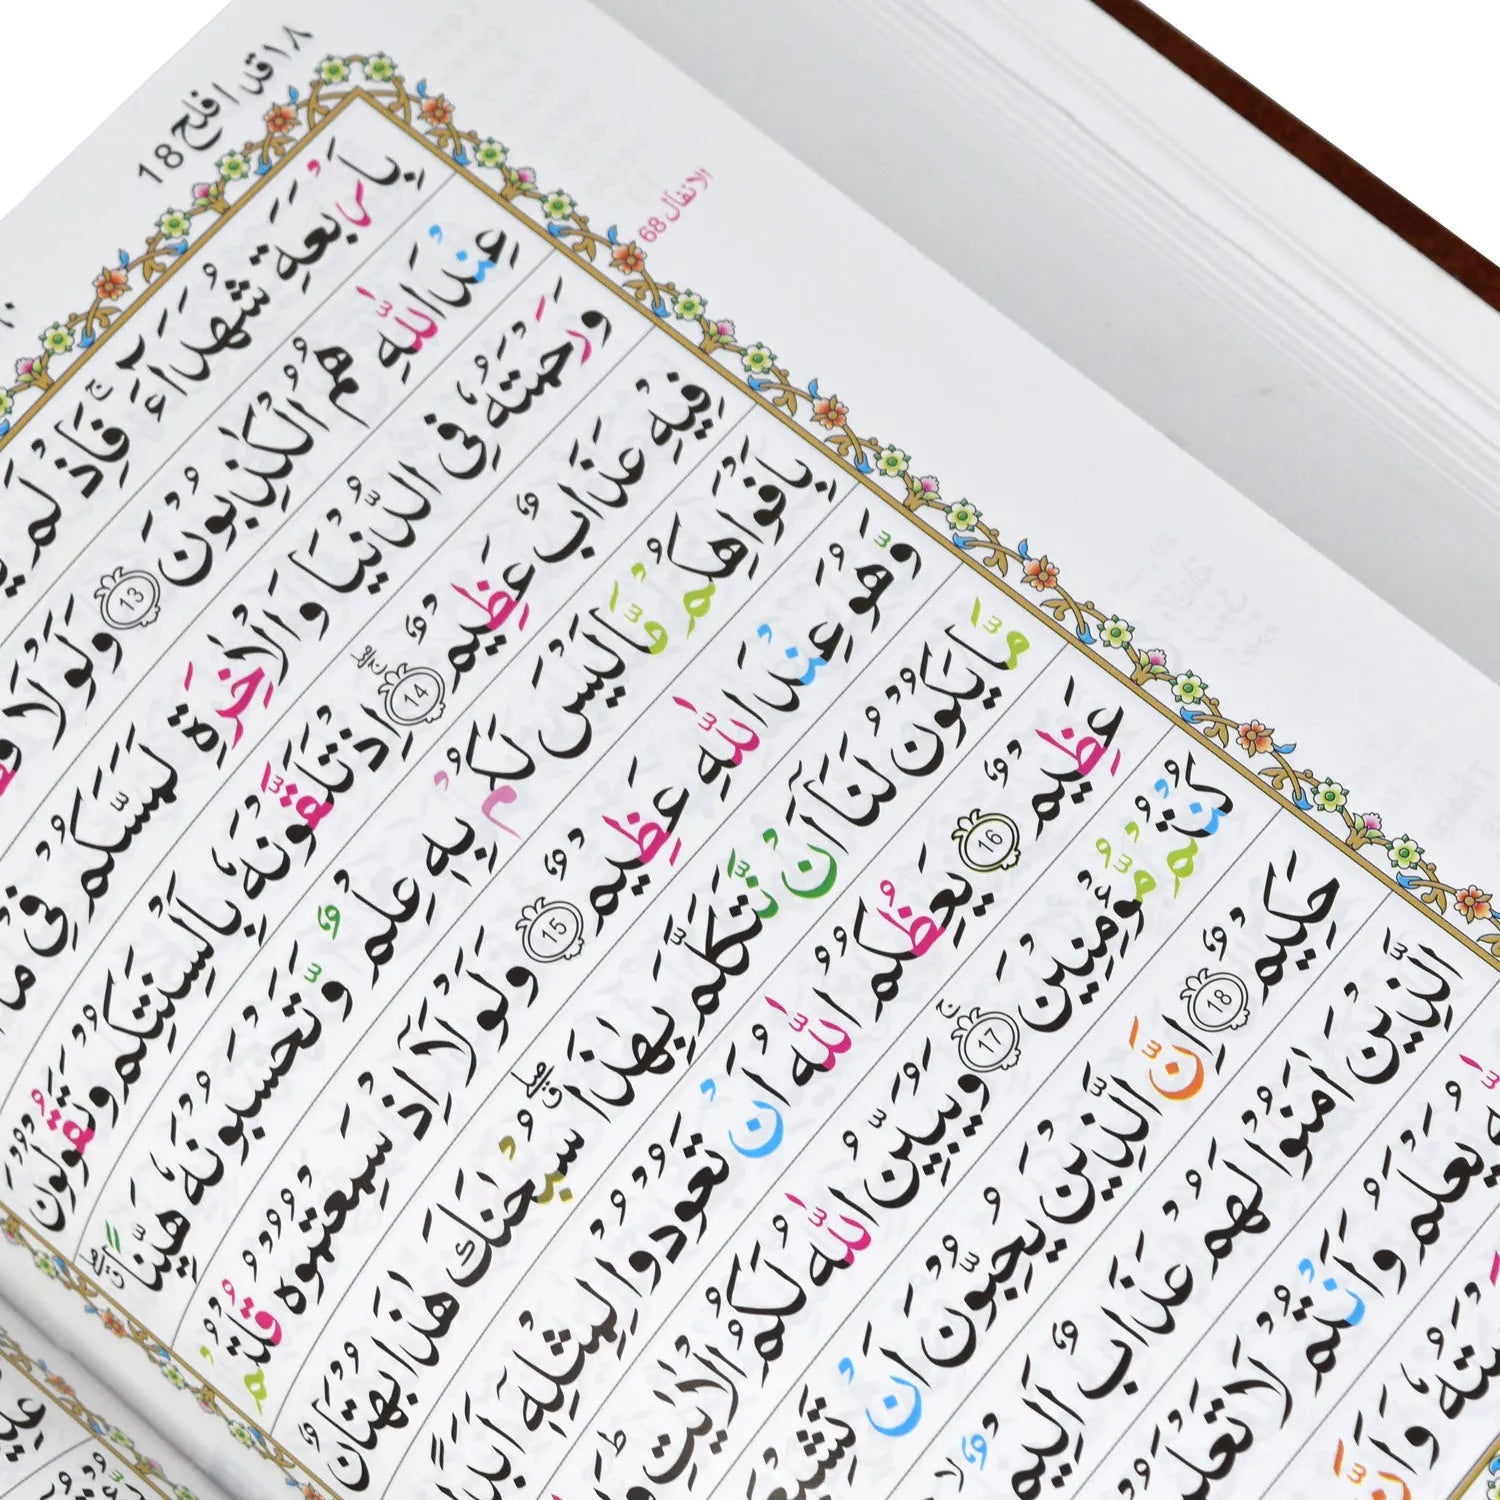 ١٨ قد افلح 18
الانفال 68
بِاَرۡبَعَةِ شُهَدَآءَ‌ ۚ فَاِذۡ لَمۡ
عِنۡدَ اللّٰهِ هُمُ الۡكٰذِبُوۡنَ 13 وَلَوۡلَا
وَرَحۡمَتُهٗ فِى الدُّنۡيَا وَالۡاٰخِرَةِ لَمَسَّكُمۡ فِىۡ مَاۤ
فِيۡهِ عَذَابٌ عَظِيۡمٌ 14 اِذۡ تَلَقَّوۡنَهٗ بِاَلۡسِنَتِكُمۡ وَتَقُوۡلُوۡنَ
بِاَفۡوَاهِكُمۡ مَّا لَـيۡسَ لَـكُمۡ بِهٖ عِلۡمٌ وَّتَحۡسَبُوۡنَهٗ هَيِّنًا
وَّهُوَ عِنۡدَ اللّٰهِ عَظِيۡمٌ 15 وَلَوۡلَاۤ اِذۡ سَمِعۡتُمُوۡهُ قُلۡتُمۡ
مَّا يَكُوۡنُ لَـنَاۤ اَنۡ نَّـتَكَلَّمَ بِهٰذَا ‌ۖ سُبۡحٰنَكَ هٰذَا بُهۡتَانٌ
عَظِيۡمٌ 16 يَعِظُكُمُ اللّٰهُ اَنۡ تَعُوۡدُوۡا لِمِثۡلِهٖۤ اَبَدًا
كُنۡتُمۡ مُّؤۡمِنِيۡنَ‌ۚ 17 وَيُبَيِّنُ اللّٰهُ لَـكُمُ الۡاٰيٰتِ‌ؕ
حَكِيۡمٌ 18 اِنَّ الَّذِيۡنَ يُحِبُّوۡنَ اَنۡ تَشِيۡعَ
الَّذِيۡنَ اٰمَنُوۡا لَهُمۡ عَذَابٌ اَلِيۡمٌۙ
يَعۡلَمُ وَاَنۡـتُمۡ لَا
وَاَنَّ